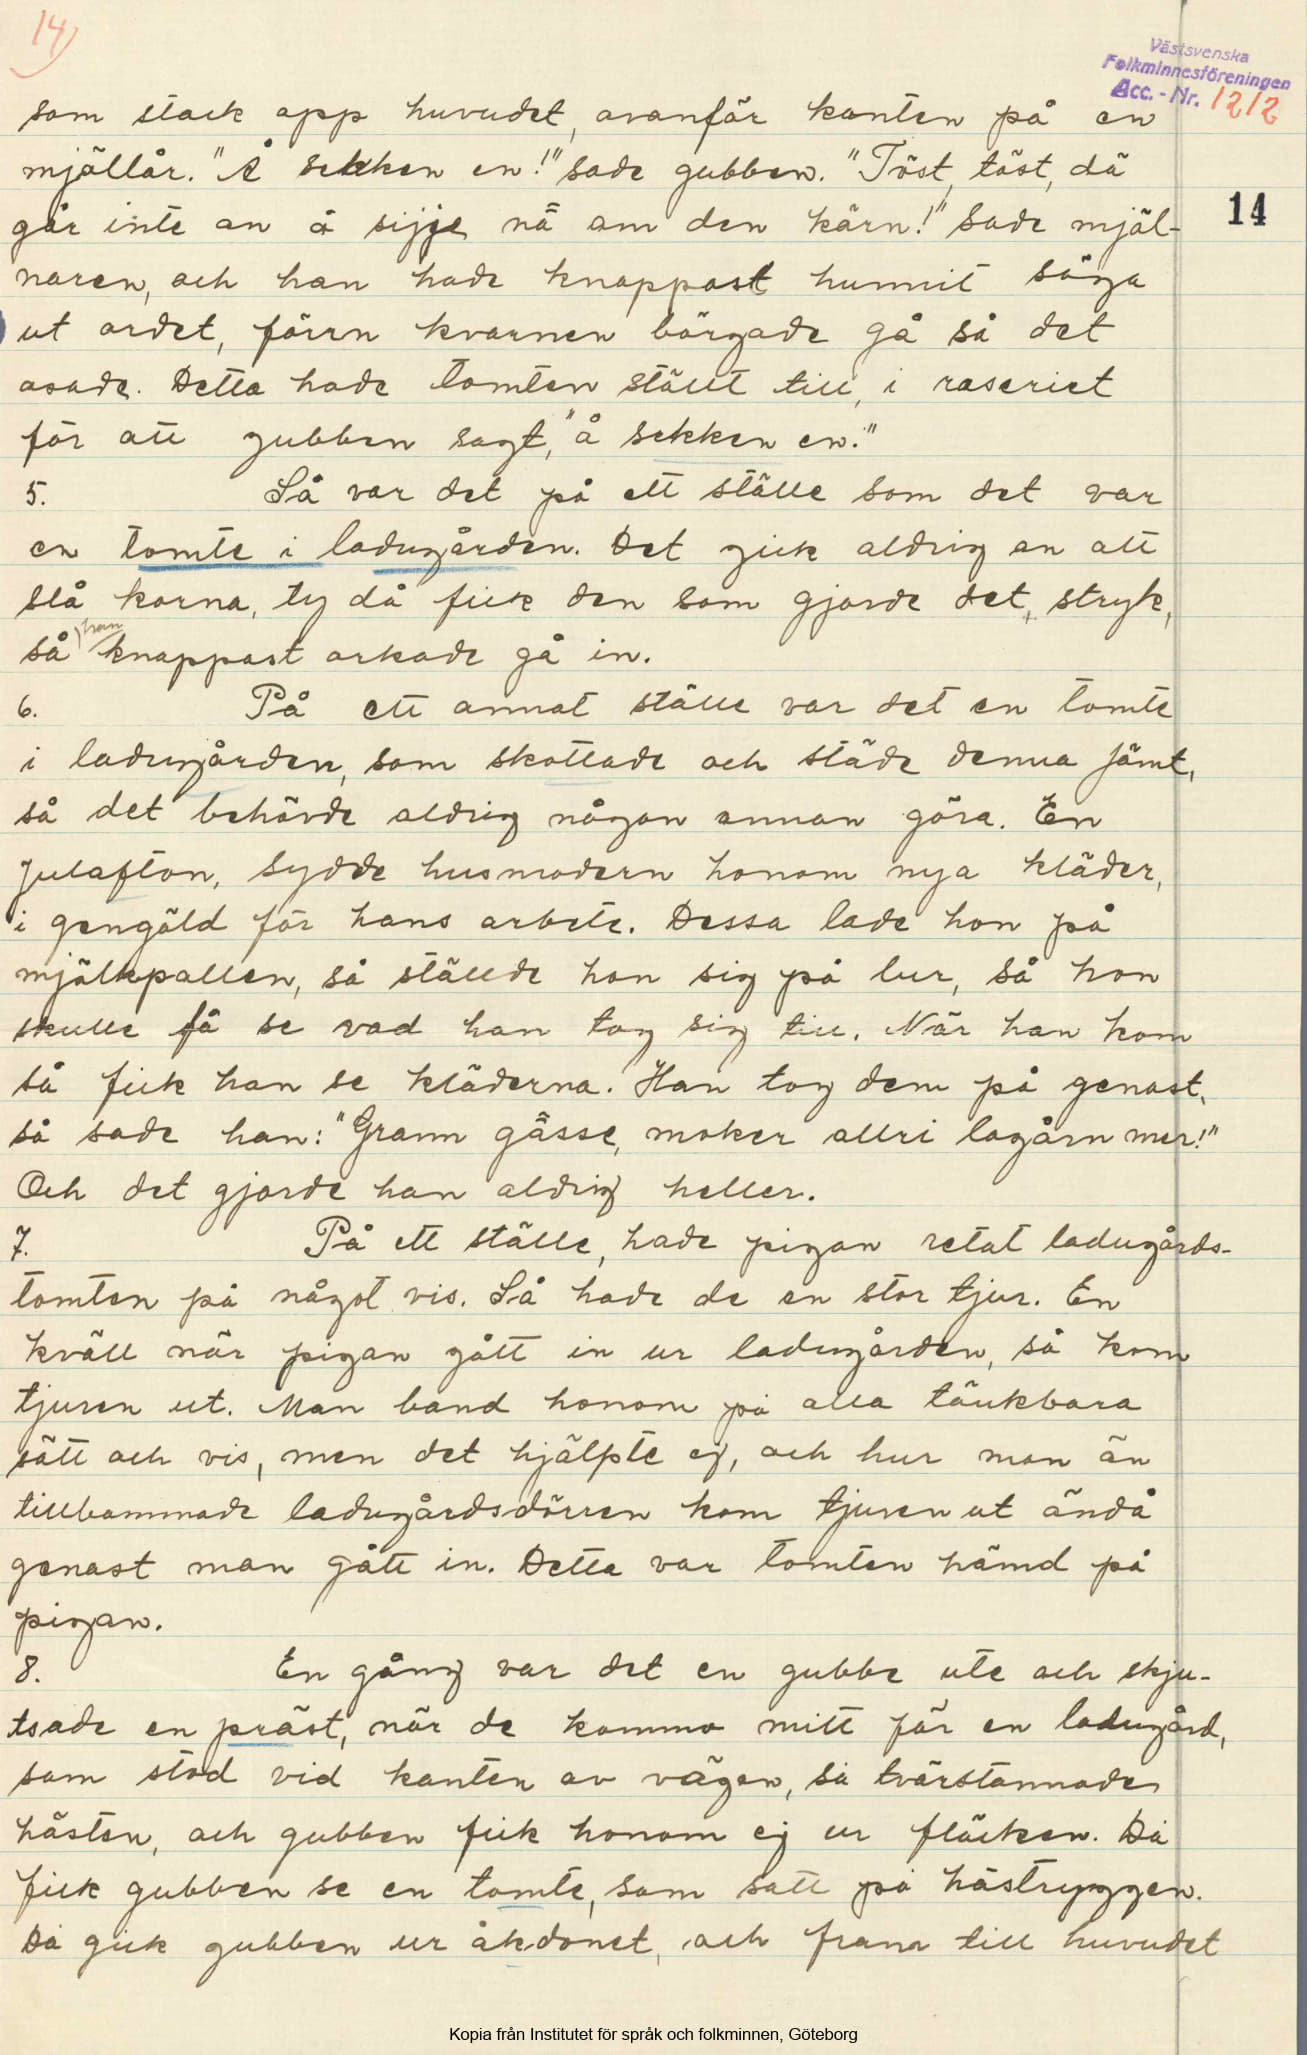 14)
Västsvenska
Folkminnesföreningen
Acc. - Nr. 1212
14
som stack opp huvudet, ovanför kanten på en
mjöllår. "Å sekken en!" sade gubben. "Töst, töst, dä
går inte an å sijje nä om den kärn!" Sade mjöl-
naren, och han hade knappast hunnit säga
ut ordet, förrn kvarnen började gå så det
osade. Detta hade tomten ställt till, i raseriet
för att gubben sagt, "å sekken en."
5. Så var det på ett ställe som det var
en tomte i ladugården. Det gick aldrig an att
slå korna, ty då fick den som gjorde det, stryk,
så han knappast orkade gå in.
6. På ett annat ställe var det en tomte
i ladugården, som skottade och städe denna jämt,
så det behövde aldrig någon annan göra. En
julafton, sydde husmodern honom nya kläder,
i gengäld för hans arbete. Dessa lade hon på
mjölkpallen, så ställde hon sig på lur, så hon
skulle få se vad han tog sig till. När han kom
så fick han se kläderna. Han tog dem på genast,
så sade han: "Grann gåsse, moker allri lagårn mer!"
Och det gjorde han aldrig heller.
7. På ett ställe, hade pigan retat ladugårds-
tomten på något vis. Så hade de en stor tjur. En
kväll när pigan gått in ur ladugården, så kom
tjuren ut. Man band honom på alla tänkbara
sätt och vis, men det hjälpte ej, och hur man än
tillbommade ladugårdsdörren kom tjuren ut ändå
genast man gått in. Detta var tomten hämd på
pigan.
8. En gång var det en gubbe ute och skju-
tsade en präst, när de kommo mitt för en ladugård,
som stod vid kanten av vägen, så tvärstannade
hästen, och gubben fick honom ej ur fläcken. Då
fick gubben se en tomte, som satt på hästryggen.
Då gick gubben ur åkdonet, och fram till huvudet
Kopia från Institutet för språk och folkminnen, Göteborg